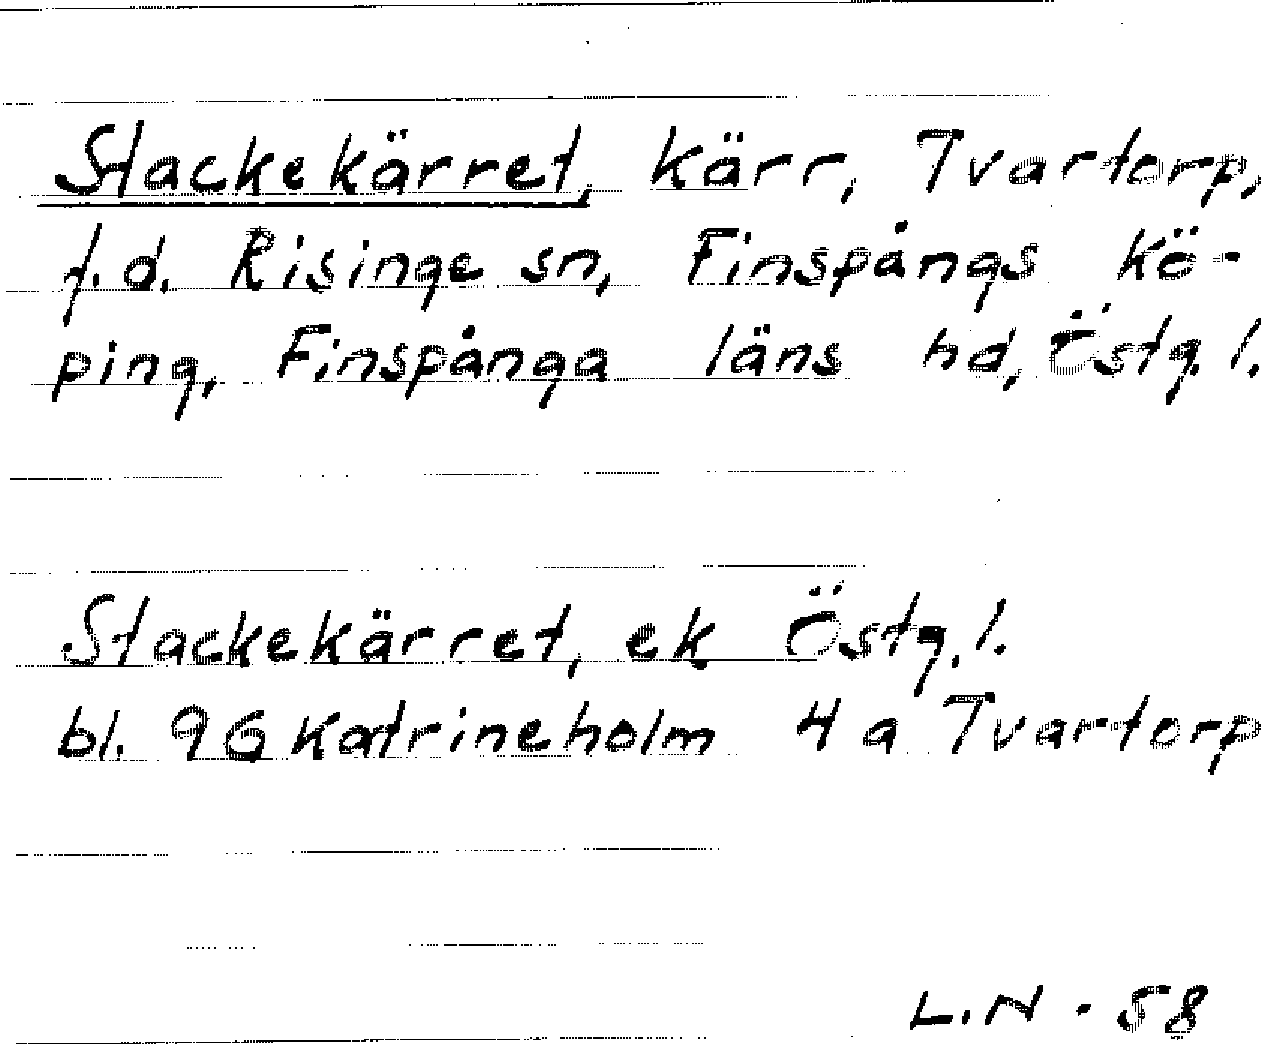 Stackekärret, kärr, Tvartorp,
f.d. Risinge sn, Finspångs kö-
ping, Finspånga läns hd, Östg. l.
Stackekärret, ek Östg. l.
bl. 96 Katrineholm 4 a Tvartorp
L.N - 58